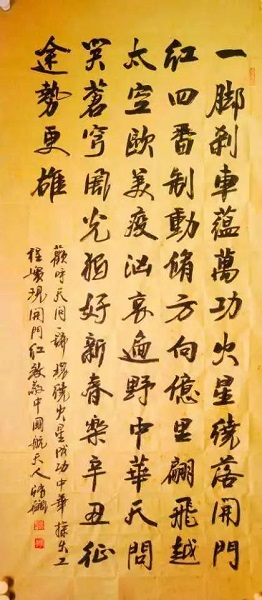 一脚刹車蘊萬功火星繞落開門
紅四番制動脩方向億里翩飛越
太空歐美疫汹哀遍野中華天問
笑蒼穹風光独好新春樂辛丑征
途勢更雄
歡呼天问一號環繞火星成功中華探火工
程實現開門紅致敬中國航天人